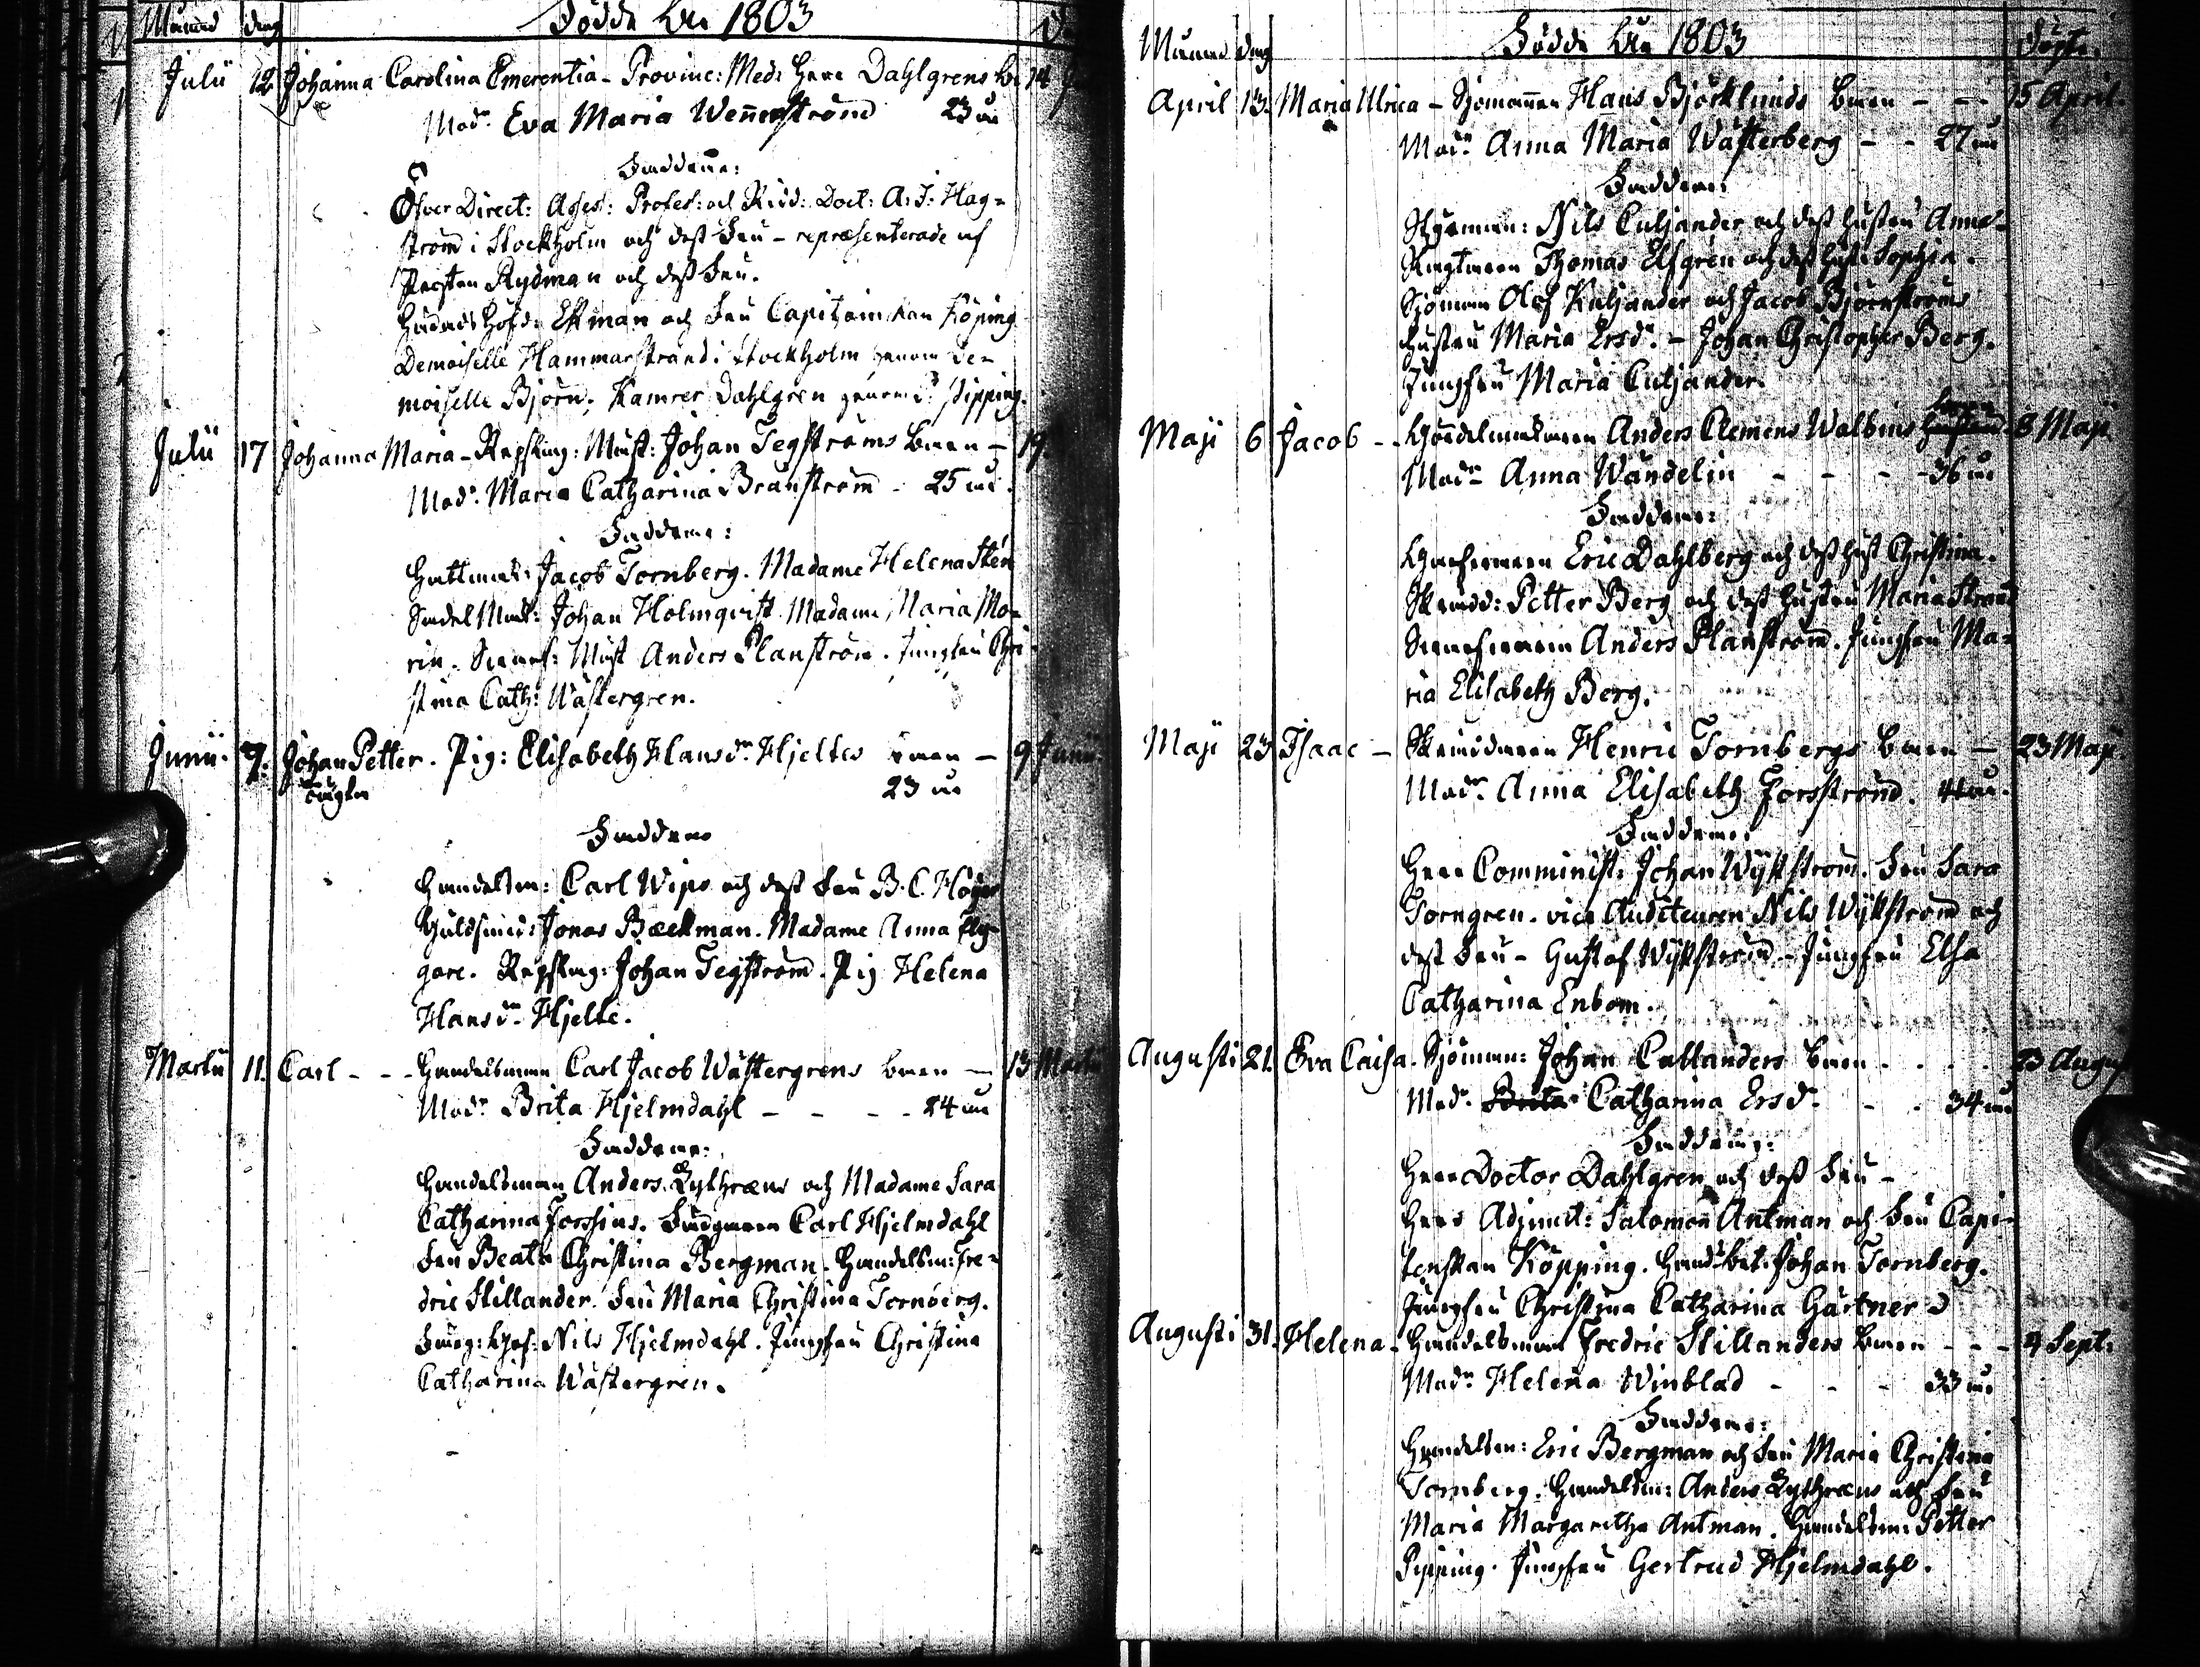 Månad dag Födde åhr 1803
Julii 12 Johanna Carolina Emerentia - Provinc: Med: Herr Dahlgrens bn 14
Modr Eva Maria Wennerström 23 åår
Faddrarne:
Öfver Direct: Asses: Profes: och Ridd: Doct: A: J: Hag=
ström i Stockholm och dess Fru - repræsenterade af
Rydman och dess Fru.
Häradshöfd: Ekman och Fru Capitainskan Köping
Demoiselle Hammarstrand i Stockholm genom De=
moiselle Björn. Kamrer Dahlgren genom Pipping.
Julii 17 Johanna Maria - Repslag: Mäst: Johan Tegströms barn - 19
Modr Maria Catharina Branström - 25 åår
Faddrarne:
Hattmak: Jacob Tornberg. Madame Helena Sten
Sadel Mak: Johan Holmqvist Madame Maria Mo=
rin. Mäst Anders Planström. Jungfru Chri=
stina Cath: Wästergren.
Junii 7. Johan Petter. Pig: Elisabeth Hansdr Hjeltes barn - 9 Junii
23 åår
Faddrar
Handelsm: Carl Wips och dess Fru B. C. Höijer
Guldsmid: Jonas Bæckman. Madame Anna Ply=
gare. Repslag: Johan Tegström. Pig Helena
Hansdr Hjelte.
Martii 11. Carl - - - Handelsmann Carl Jacob Wästergrens barn - 13 Martii
Modr Brita Hjelmdahl - - - - 24 åår
Faddrarne:
Handelsman Anders Lythræus och Madame Sara
Catharina Forssius. Carl Hjelmdahl
Fru Beata Christina Bergman. Handelsm: Fre=
dric Stillander. Fru Maria Christina Tornberg.
Nils Hjelmdahl. Jungfru Christina
Catharina Wästergren.
Månad dag Födde åhr 1803 döpte.
April 13. Maria Ulrica - Sjömannen Hans Björklunds barn - - - 15 April
Modr Anna Maria Wästerberg - - 27 åår
Faddrarne:
Styrman: Nils Culjander och dess hustru Anna.
Thomas Elfgren och dess hust: Sophia.
Sjöman Olof Kuljander och Jacob Björnströms
hustru Maria Ersdr. - Johan Christopher Berg.
Jungfru Maria Culjander.
Maji 6 Jacob - - Anders Clemens Walbms 8 Maji
Modr Anna Wandelin - - - - 36 åår
Faddrarne:
Eric Dahlberg och dess hust Christina.
Skrädd: Petter Berg och dess hustru Maria Strand
Anders Planström. Jungfru Ma=
ria Elisabeth Berg.
Maji 23 Isaac - Skräddaren Henric Tornbergs barn - 23 Maji
Modr Anna Elisabeth Forsström. 44 åår.
Faddrarne:
Herr Comminist: Johan Wykström. Fru Sara
Torngren. vice Auditeuren Nils Wykström och
dess Fru - Gustaf Wykström - Jungfru Elsa
Catharina Enbom.
Augusti 21. Eva Caisa. Sjöman: Johan Callanders barn - - - 23 Augus
Modr Brita Catharina Ersdr. - - 34 åår
Faddrarne:
Herr Doctor Dahlgren och dess Fru -
Herr Adjunct: Salomon Antman och Fru Capi=
tenskan Köpping. Johan Tornberg.
Jungfru Christina Catharina Gärtner
Augusti 31. Helena - Handelsman Fredric Stillanders barn - - - 4 Sept:
Modr Helena Winblad - - - 33 åår
Faddrarne:
Handelsm: Eric Bergman och Fru Maria Christina
Tornberg. Handelsm: Anders Lythræus och Fru
Maria Margaretha Antman. Handelsm: Petter
Pipping. Jungfru Gertrud Hjelmdahl.